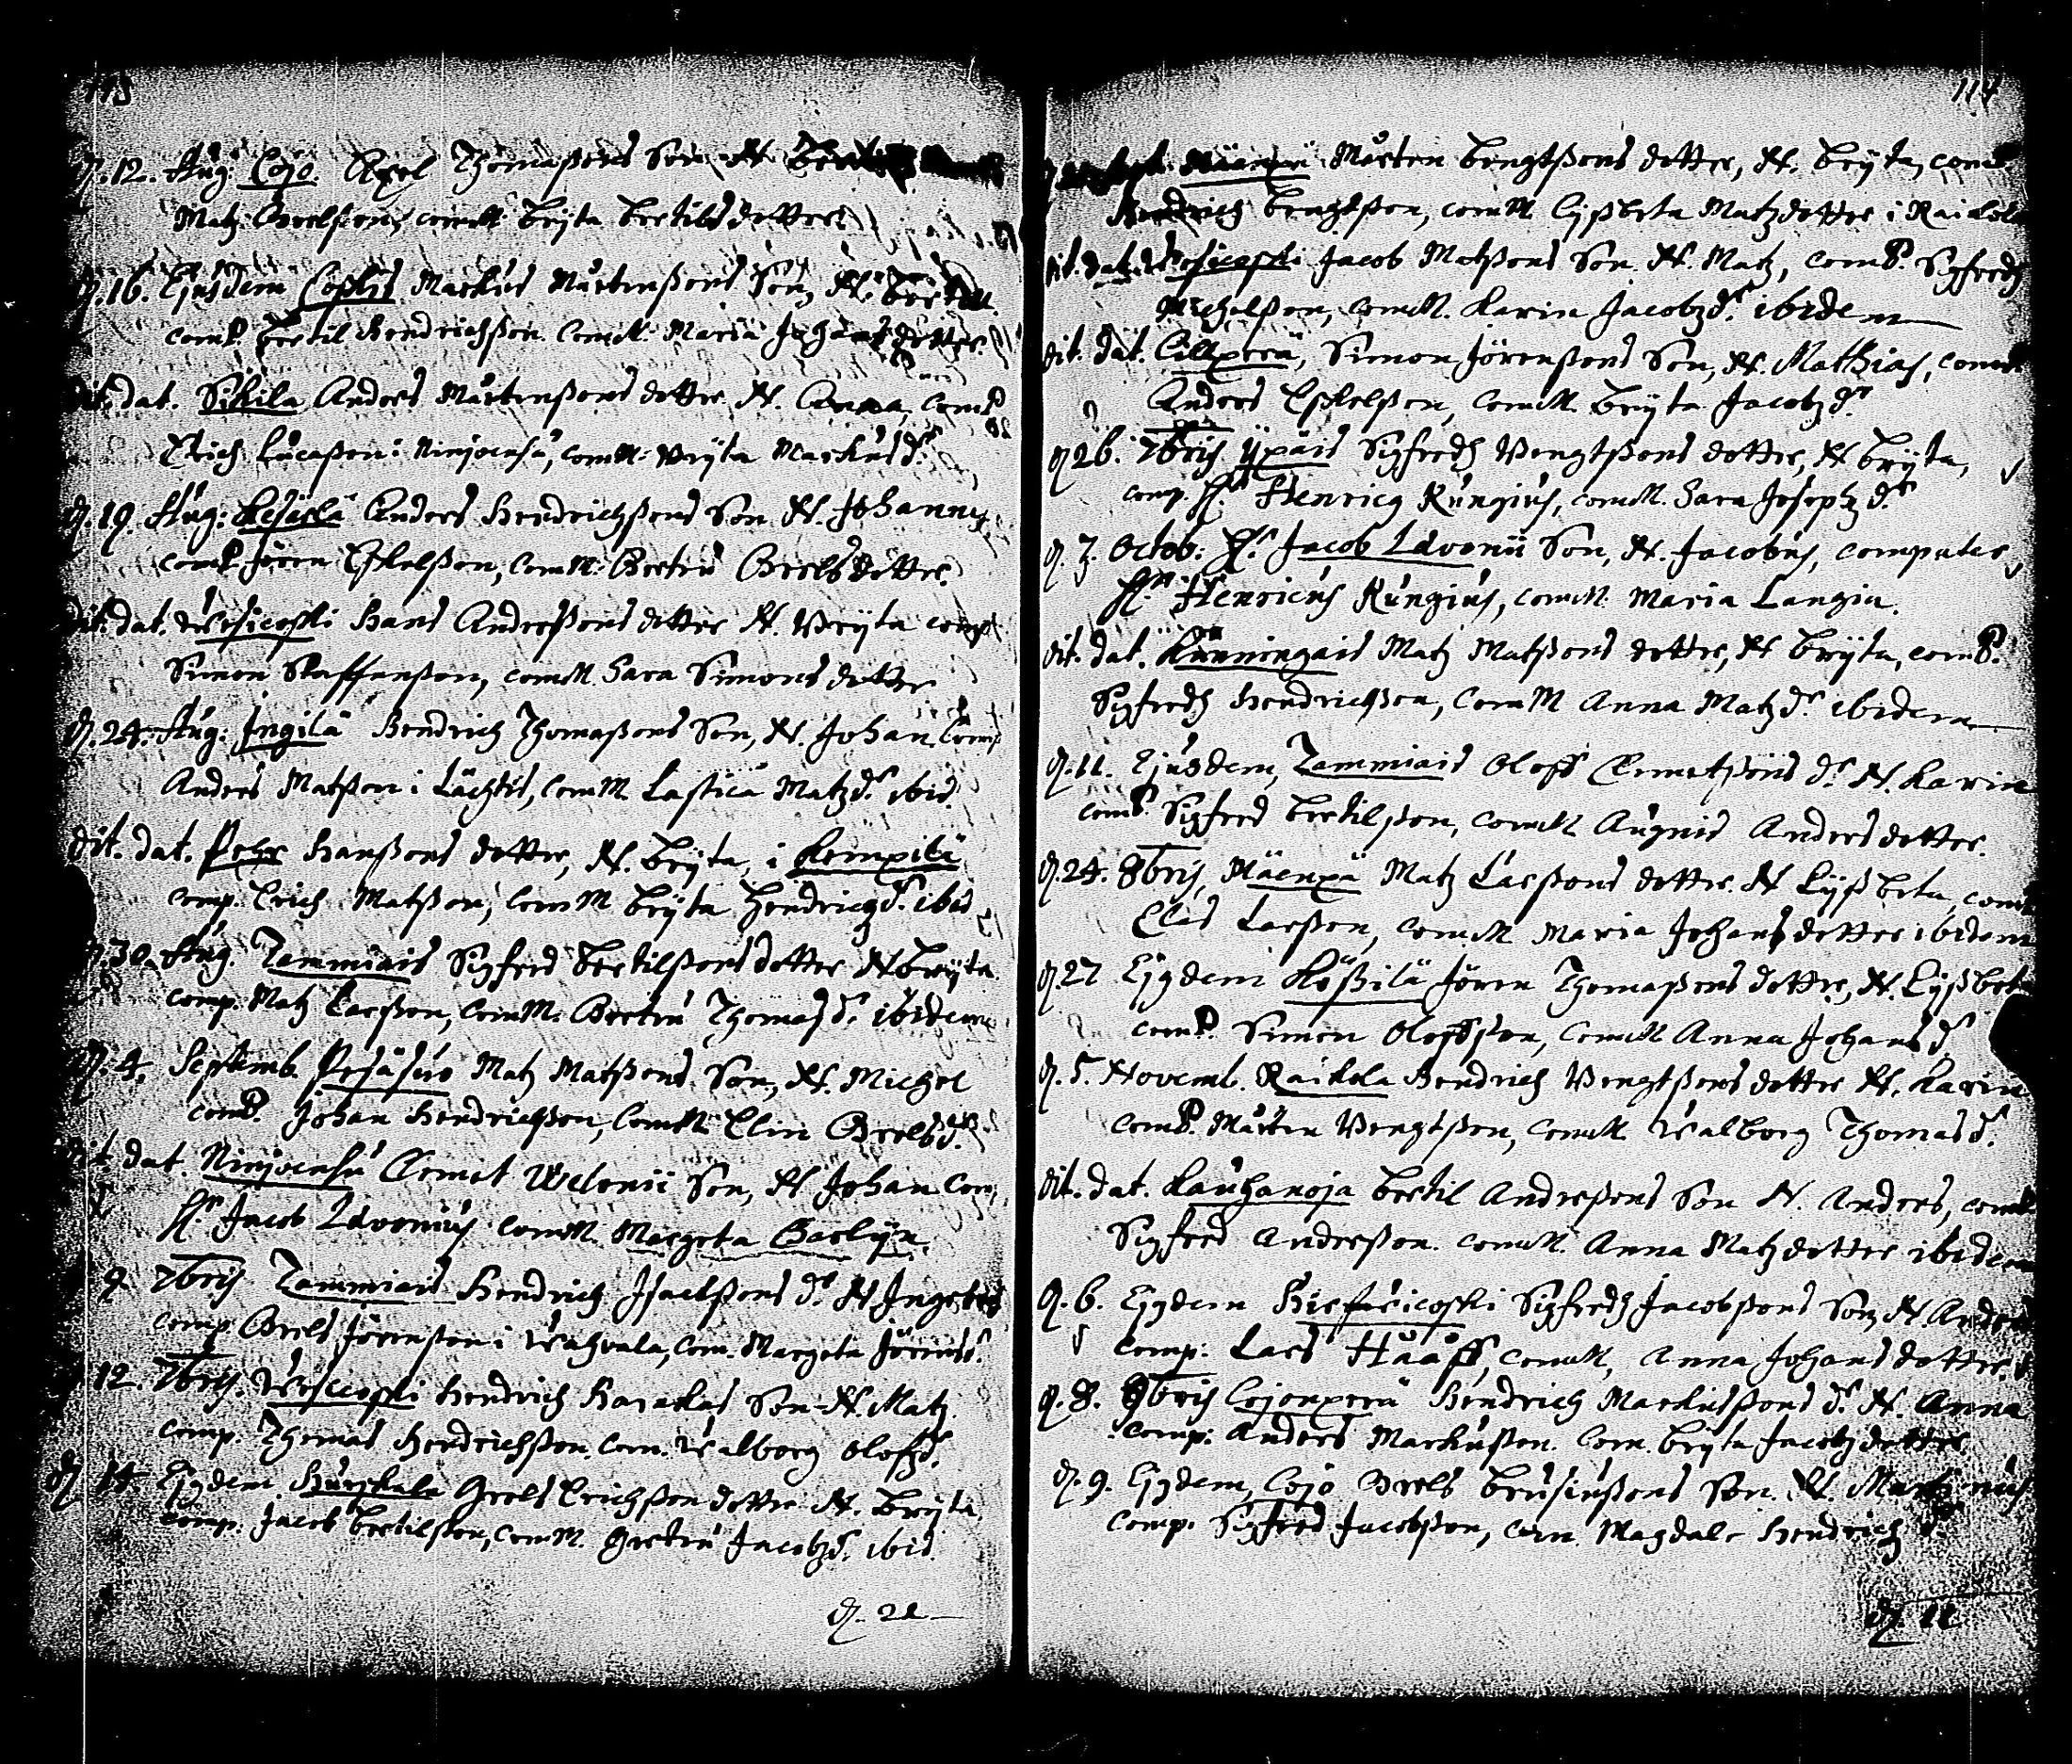 113
D. 12. Aug: Cojo. Axel Thomaßons Son N.
Matz Grelsson, comM. Bryta Bertilsdotter
D. 16. Ejusdem Coskis Markus Mårtenßons Son, N. Bertill
comP. Bertil Hendrichsson comM. Maria Johans dotter.
dit. dat. Sikila Anders Mårtenßons dotter N. Anna, comP
Erich Lucaßon i Ninjoensu, comM: Bryta Markusdr
D. 19. Aug: Anders Hendrichßons Son N. Johannes
comP. Jören Eskelßon, comM: Gretru Grelsdotter.
dit. dat. Wesicoski Hans Andersßons dotter N. Bryta comp.
Simon Staffansson, comM. Sara Simons dotter
D. 24. Aug: Ingilä Hendrich Thomaßons Son, N. Johan comP
Anders Matßon i Lächtis, comM. Matzdr ibid.
dit. dat. Pehr Hanßons dotter, N. Bryta, i Kempilä
comp. Erich Matßon, comM Bryta Hendrichdr ibid
D. 30. Aug. Tammiais Sigfred Bertilßons dotter N Bryta
comp. Matz Larßon, comM. Gretru Thomasdr ibidem
D. 4. Septemb. Pesäsuo Matz Matßons Son, N. Michel
comP. Johan Hendrichßon, comM. Elin Grelsdr
dit. dat. Ninjoensu Clemet Welonii Son, N Johan com
Hr Jacob Lavonius comM. Margeta Carlijn.
9 7bris Tammiais Hendrich Isachßons dr N Ingebor
comp. Grels Jörenßon i Wahvala, com. Margeta Jörensdr
12. 7bris. Wesicoski Hendrich Son N. Matz
comp. Thomas Hendrichßon com. Walborg Olofsdr.
D 14. Ejusdem Hurskala Grels Erichßon dotter N. Bryta
comp. Jacob Bertilßon, comM. Gretru Jacobzdr. ibid.
D. 21
114
Mäenpä Mårten Bengtßons dotter, N. Bryta, comP
Hendrich Bengtßon, comM Lyßbeta Matzdotter i Raikola
dit. dat. Wesicoski Jacob Matßons Son N. Matz, comP. Sigfredh
Michelßon, comM. Karin Jacobzdr ibidem
dit. dat. Cillxperä, Simon Jörenßons Son, N. Mathias, comP
Anders Eskelßon, comM. Bryta Jacobzdr
D 26. 7bris Ypäis Sigfredh Bengtßons dotter, N Bryta,
comp. Hr Henricus Rungius, comM. Sara Josephzdr
D. 7. Octob: Hr Jacob Lavonii Son, N. Jacobus, computer
Hr Henricus Rungius, comM. Maria Langia.
dit. dat. Känningais Matz Matßons dotter, N Bryta, comP.
Sigfredh Hendrichßon, comM Anna Matzdr ibidem
D. 11. Ejusdem, Tammiais Oloff Clemetßons dr N. Karin
comP. Sigfred Bertilßon, comM Augnis Andersdotter.
D. 24. 8bris, Mäenpä Matz Larßons dotter N Lyßbeta, comP
Elis Larßon, comM Maria Johans dotter ibidem
D. 27 Ejusdem Kößilä Jören Thomaßons dotter, N. Lyßbet
comP. Simon Olofsson, comM Anna Johansdr
D. 5. Novemb. Raikola Hendrich Bengtßons dotter N. Karin
comP. Mårten Bengtßon, comM Walborg Thomasdr.
dit. dat. Kauhanoja Bertil Andersßons Son N. Anders, comP
Sigfred Andersßon. comM. Anna Matzdotter ibidem
D. 6. Ejusdem Sigfredh Jacobßons Son N. Anders
comp. Lars Hååff, comM, Anna Johans dotter.
D. 8. 9bris Lejonperä Hendrich Markusßons dr. N. Anna
comp. Anders Markusson. com. Bryta Jacobzdotter
D. 9. Ejusdem, Cojo Grels Brusiußons Son. N. Martinus
comp. Sigfred Jacobßon, com. Magdale Hendrichdr
D. 11